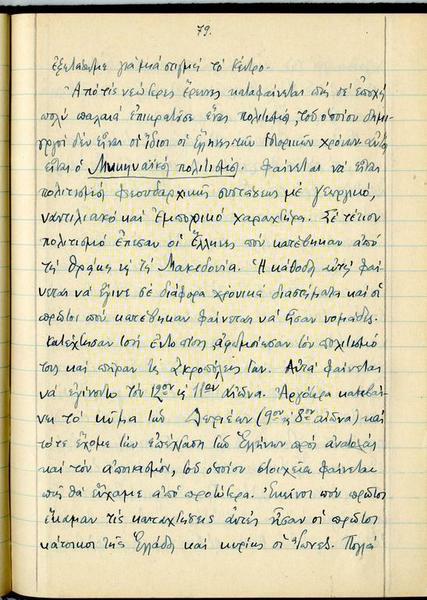 79.
ἐξετάσωμε γιὰ μιὰ στιγμὴ τὸ κέντρο.
Ἀπὸ τὶς νεώτερες ἔρευνες καταφαίνεται πὼς σὲ ἐποχὴ
πολὺ παλαιὰ ἐπικρατοῦσε ἕνας πολιτισμός, τοῦ ὁποίου δημι-
ουργοὶ δὲν εἶναι οἱ ἴδιοι οἱ ἕλληνες τῶν ἱστορικῶν χρόνων. αὐτὸς
εἶναι ὁ Μυκηναϊκὸς πολιτισμός. Φαίνεται νὰ εἶναι
πολιτισμὸς φεουδαρχικῆς συστάσεως μὲ γεωργικό,
ναυτιλιακὸ καὶ ἐμπορικὸ χαρακτῆρα. Σὲ τέτοιον
πολιτισμὸ ἔπεσαν οἱ Ἕλληνες ποὺ κατέβηκαν ἀπὸ
τὴ Θράκη ἢ τὴ Μακεδονία. Ἡ κάθοδος αὐτὴ φαί-
νεται νὰ ἔγινε σὲ διάφορα χρονικὰ διαστήματα καὶ οἱ
πρῶτοι ποὺ κατέβηκαν φαίνεται νὰ ἦσαν νομάδες.
κατέκτησαν τοὺς ἐντοπίους, ἀφωμοίωσαν τὸν πολιτισμό
τους καὶ πῆραν τὶς Ἀκροπόλεις των. Αὐτὰ φαίνεται
νὰ ἐγίνοντο τὸν 12ον ἢ 11ον αἰῶνα. Ἀργότερα κατεβαί-
νει τὸ κῦμα τῶν Δωριέων (9ον ἢ 8ον αἰῶνα) καὶ
τότε ἔχομε τὴν ἐπέκταση τῶν Ἑλλήνων πρὸς ἀνατολὰς
καὶ τὸν ἀποικισμό, τοῦ ὁποίου στοιχεῖα φαίνεται
πὼς θὰ εἴχαμε ἀπὸ προτύτερα. Ἐκεῖνοι ποὺ πρῶτοι
ἔκαμαν τὶς κατακτήσεις αὐτὲς ἦσαν οἱ πρῶτοι
κάτοικοι τῆς Ἑλλάδος καὶ κυρίως οἱ Ἴωνες. Πολλὰ